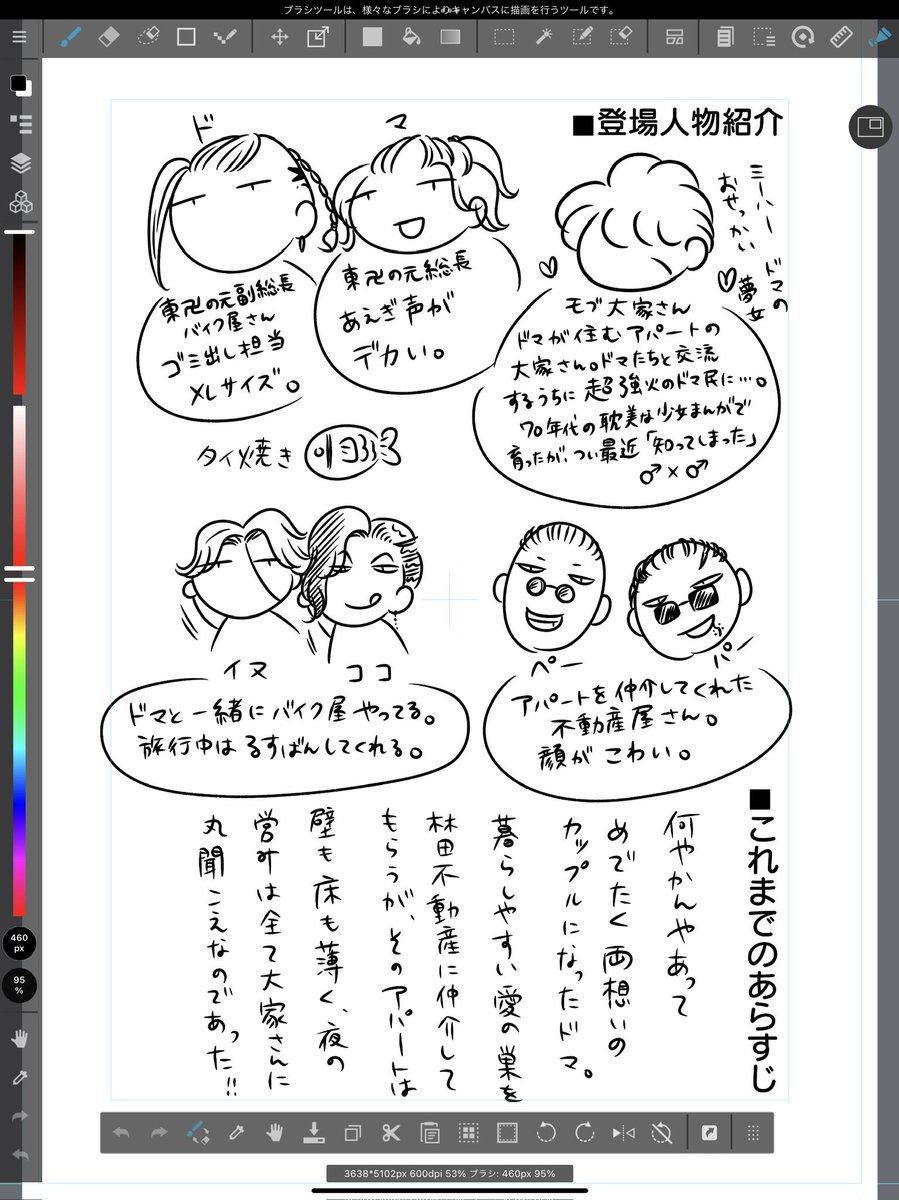 ブラシツールは、様々なブラシによりキャンバスに描画を行うツールです。
■登場人物紹介
ド
マ
ミーハー
おせっかい
ドマの
夢女
東卍の元副総長
バイク屋さん
ゴミ出し担当
XLサイズ。
東卍の元総長
あえぎ声が
デカい。
モブ大家さん
ドマが住むアパートの
大家さん。ドマたちと交流
するうちに超強火のドマ民に…。
70年代の耽美な少女まんがで
育ったが、つい最近「知ってしまった」
♂×♂
タイ焼き
イヌ
ココ
ドマと一緒にバイク屋やってる。
旅行中はるすばんしてくれる。
ペー
パー
アパートを仲介してくれた
不動産屋さん。
顔がこわい。
■これまでのあらすじ
何やかんやあって
めでたく両想いの
カップルになったドマ。
暮らしやすい愛の巣を
林田不動産に仲介して
もらうが、そのアパートは
壁も床も薄く、夜の
営みは全て大家さんに
丸聞こえなのであった!!
460
px
95
%
3638*5102px 600dpi 53% ブラシ: 460px 95%